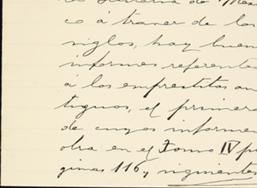 de Mex
co á traver de los
siglos, hay buen
informes referente
á los emprestitos an
tiguos, el primero
de cuyos informe
obra en el Tomo IV pá
ginas 116, y siguientes